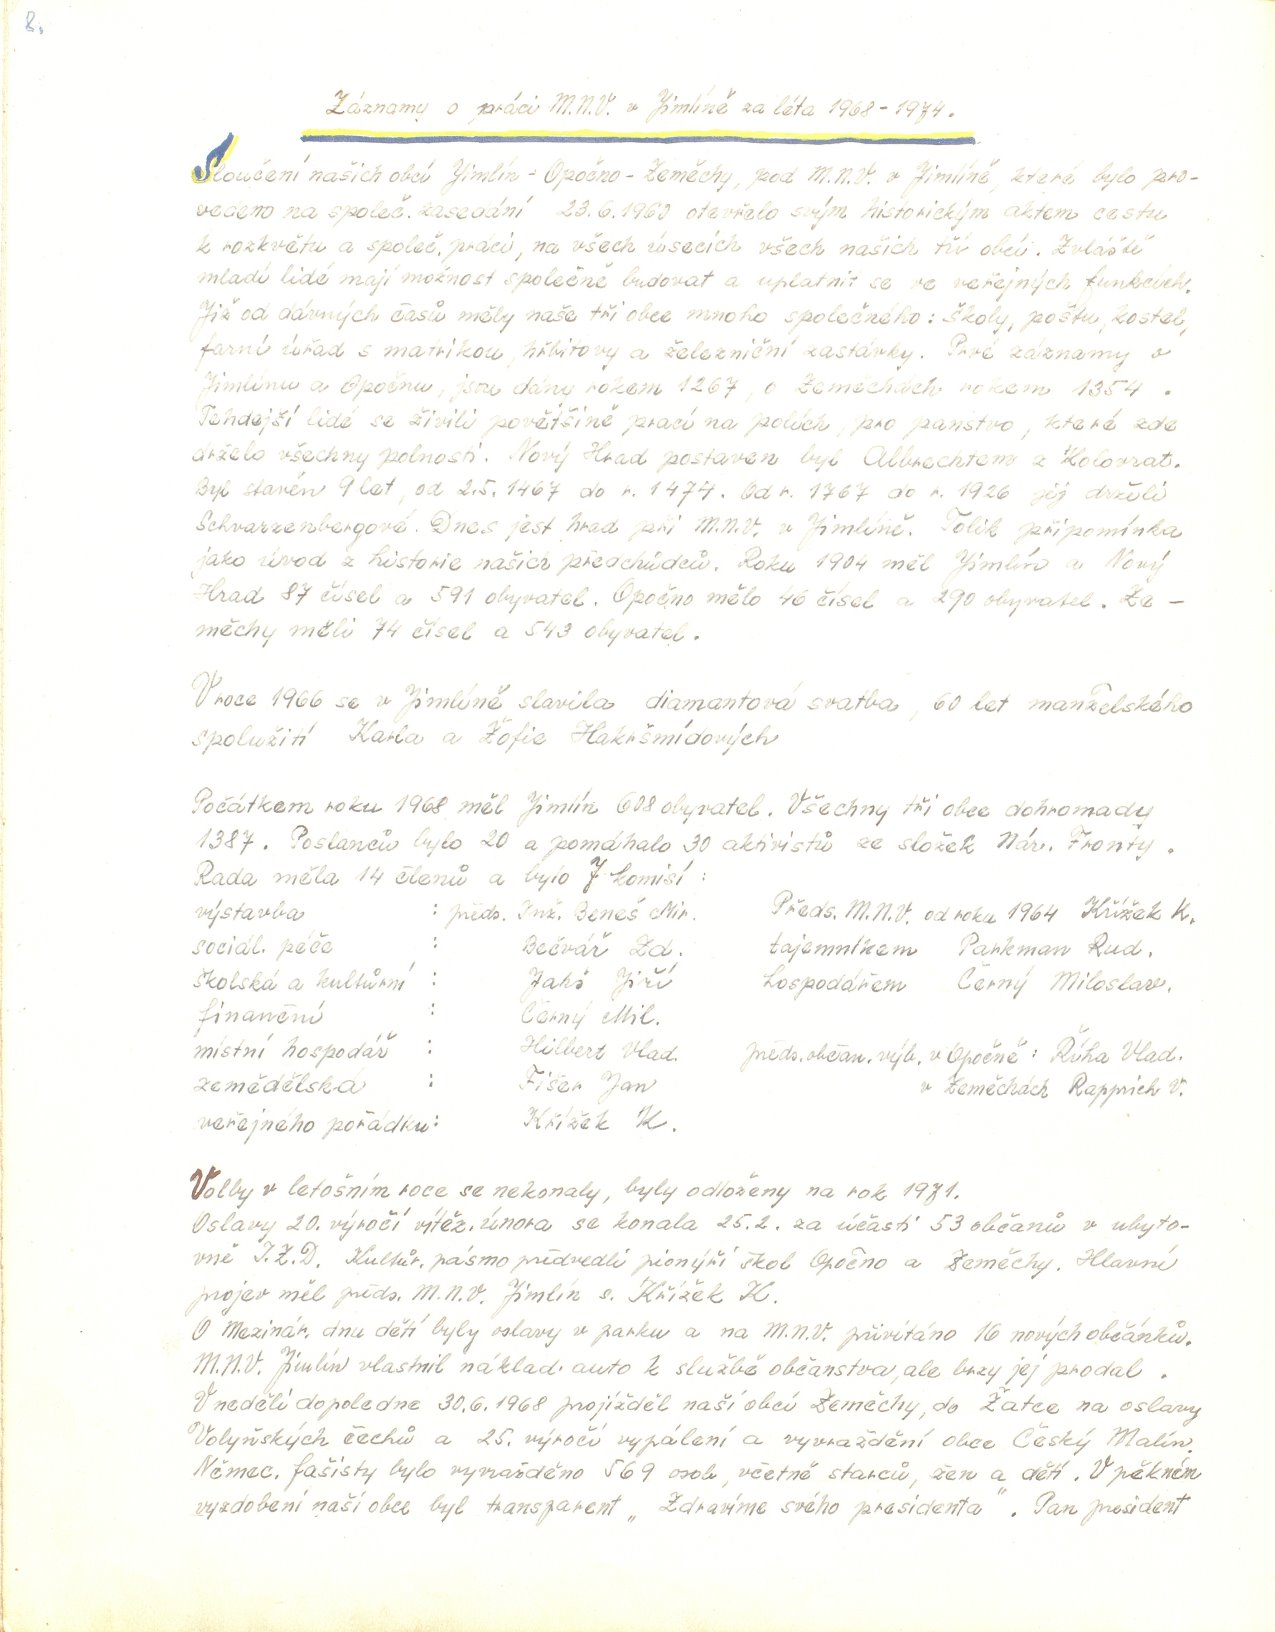 8.
Záznamy o práci M.N.V. v Jimlíně za léta 1968 - 1974.
Sloučení našich obcí Jimlín - Opočno - Zeměchy, pod M.N.V. v Jimlíně, které bylo pro-
vedeno na společ. zasedání 23.6.1960 otevřelo svým historickým aktem cestu
k rozkvětu a společ. práci, na všech úsecích všech našich tří obcí. Zvláště
mladí lidé mají možnost společně budovat a uplatnit se ve veřejných funkcích.
Již od dávných časů měly naše tři obce mnoho společného: školy, poštu, kostel,
farní úřad s matrikou, hřbitovy a železniční zastávky. Prvé záznamy o
Jimlínu a Opočnu, jsou dány rokem 1267, o Zeměchách rokem 1354.
Tehdejší lidé se živili povětšině prací na polích, pro panstvo, které zde
drželo všechny polnosti. Nový Hrad postaven byl Albrechtem z Kolovrat.
Byl stavěn 9 let, od 2.5.1467 do r. 1474. Od r. 1767 do r. 1926 jej drželi
Schvarzenbergové. Dnes jest hrad při M.N.V. v Jimlíně. Tolik připomínka
jako úvod z historie našich předchůdců. Roku 1904 měl Jimlín a Nový
Hrad 87 čísel a 591 obyvatel. Opočno mělo 46 čísel a 290 obyvatel. Ze-
měchy měli 74 čísel a 543 obyvatel.
V roce 1966 se v Jimlíně slavila diamantová svatba, 60 let manželského
spolužití Karla a Žofie Hakršmídových
Počátkem roku 1968 měl Jimlín 608 obyvatel. Všechny tři obce dohromady
1387. Poslanců bylo 20 a pomáhalo 30 aktivistů ze složek Nár. Fronty.
Rada měla 14 členů a bylo 7 komisí:
výstavba : předs. Inž. Beneš Mir. Předs. M.N.V. od roku 1964 Křížek K.
sociál. péče : Bečvář Zd. tajemníkem Parkman Rud.
školská a kultůrní : Jahš Jiří hospodářem Černý Miloslav.
finanční : Černý Mil.
místní hospodář : Hilbert Vlad. předs. občan. výb. v Opočně: Růha Vlad.
zemědělská : Fišer Jan v Zeměchách Rapprich V.
veřejného pořádku: Křížek K.
Volby v letošním roce se nekonaly, byly odloženy na rok 1971.
Oslavy 20. výročí vítěz. února se konala 25.2. za účasti 53 občanů v ubyto-
vně J.Z.D. Kultůr. pásmo předvedli pionýři škol Opočno a Zeměchy. Hlavní
projev měl předs. M.N.V. Jimlín s. Křížek K.
O Mezinár. dnu dětí byly oslavy v parku a na M.N.V. přivítáno 16 nových občánků.
M.N.V. Jimlín vlastnil náklad. auto k službě občanstva, ale brzy jej prodal.
V neděli dopoledne 30.6.1968 projížděl naší obcí Zeměchy, do Žatce na oslavy
Volyňských čechů a 25. výročí vypálení a vyvraždění obce Český Malín.
Němec. fašisty bylo vyvražděno 569 osob, včetně starců, žen a dětí. V pěkném
vyzdobení naší obce byl transparent „Zdravíme svého presidenta". Pan president